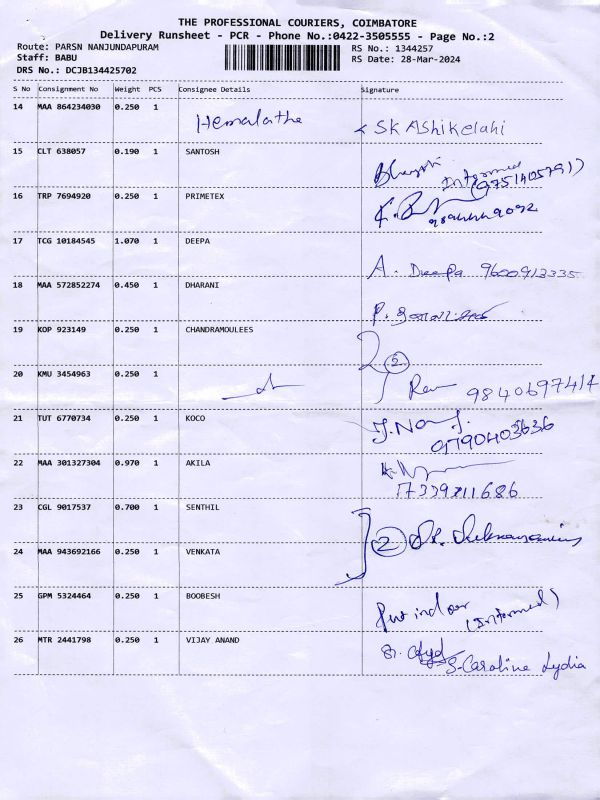 THE PROFESSIONAL COURIERS, COIMBATORE
Delivery Runsheet - PCR - Phone No.:0422-3505555 - Page No.:2
Route: PARSN NANJUNDAPURAM RS No.: 1344257
Staff: BABU RS Date: 28-Mar-2024
DRS No.: DCJB134425702
S No Consignment No Weight PCS Consignee Details Signature
14 MAA 864234030 0.250 1 Hemalathe SK AShikelahi
15 CLT 638057 0.190 1 SANTOSH
Informed
16 TRP 7694920 0.250 1 PRIMETEX
17 TCG 10184545 1.070 1 DEEPA
A. Deepa 9600913335
18 MAA 572852274 0.450 1 DHARANI
19 KOP 923149 0.250 1 CHANDRAMOULEES
2
20 KMU 3454963 0.250 1
9840697414
21 TUT 6770734 0.250 1 KOCO
9790403636
22 MAA 301327304 0.970 1 AKILA
23 CGL 9017537 0.700 1 SENTHIL
2
24 MAA 943692166 0.250 1 VENKATA
25 GPM 5324464 0.250 1 BOOBESH
Put indoor (Informed)
26 MTR 2441798 0.250 1 VIJAY ANAND
S. Caroline Lydia